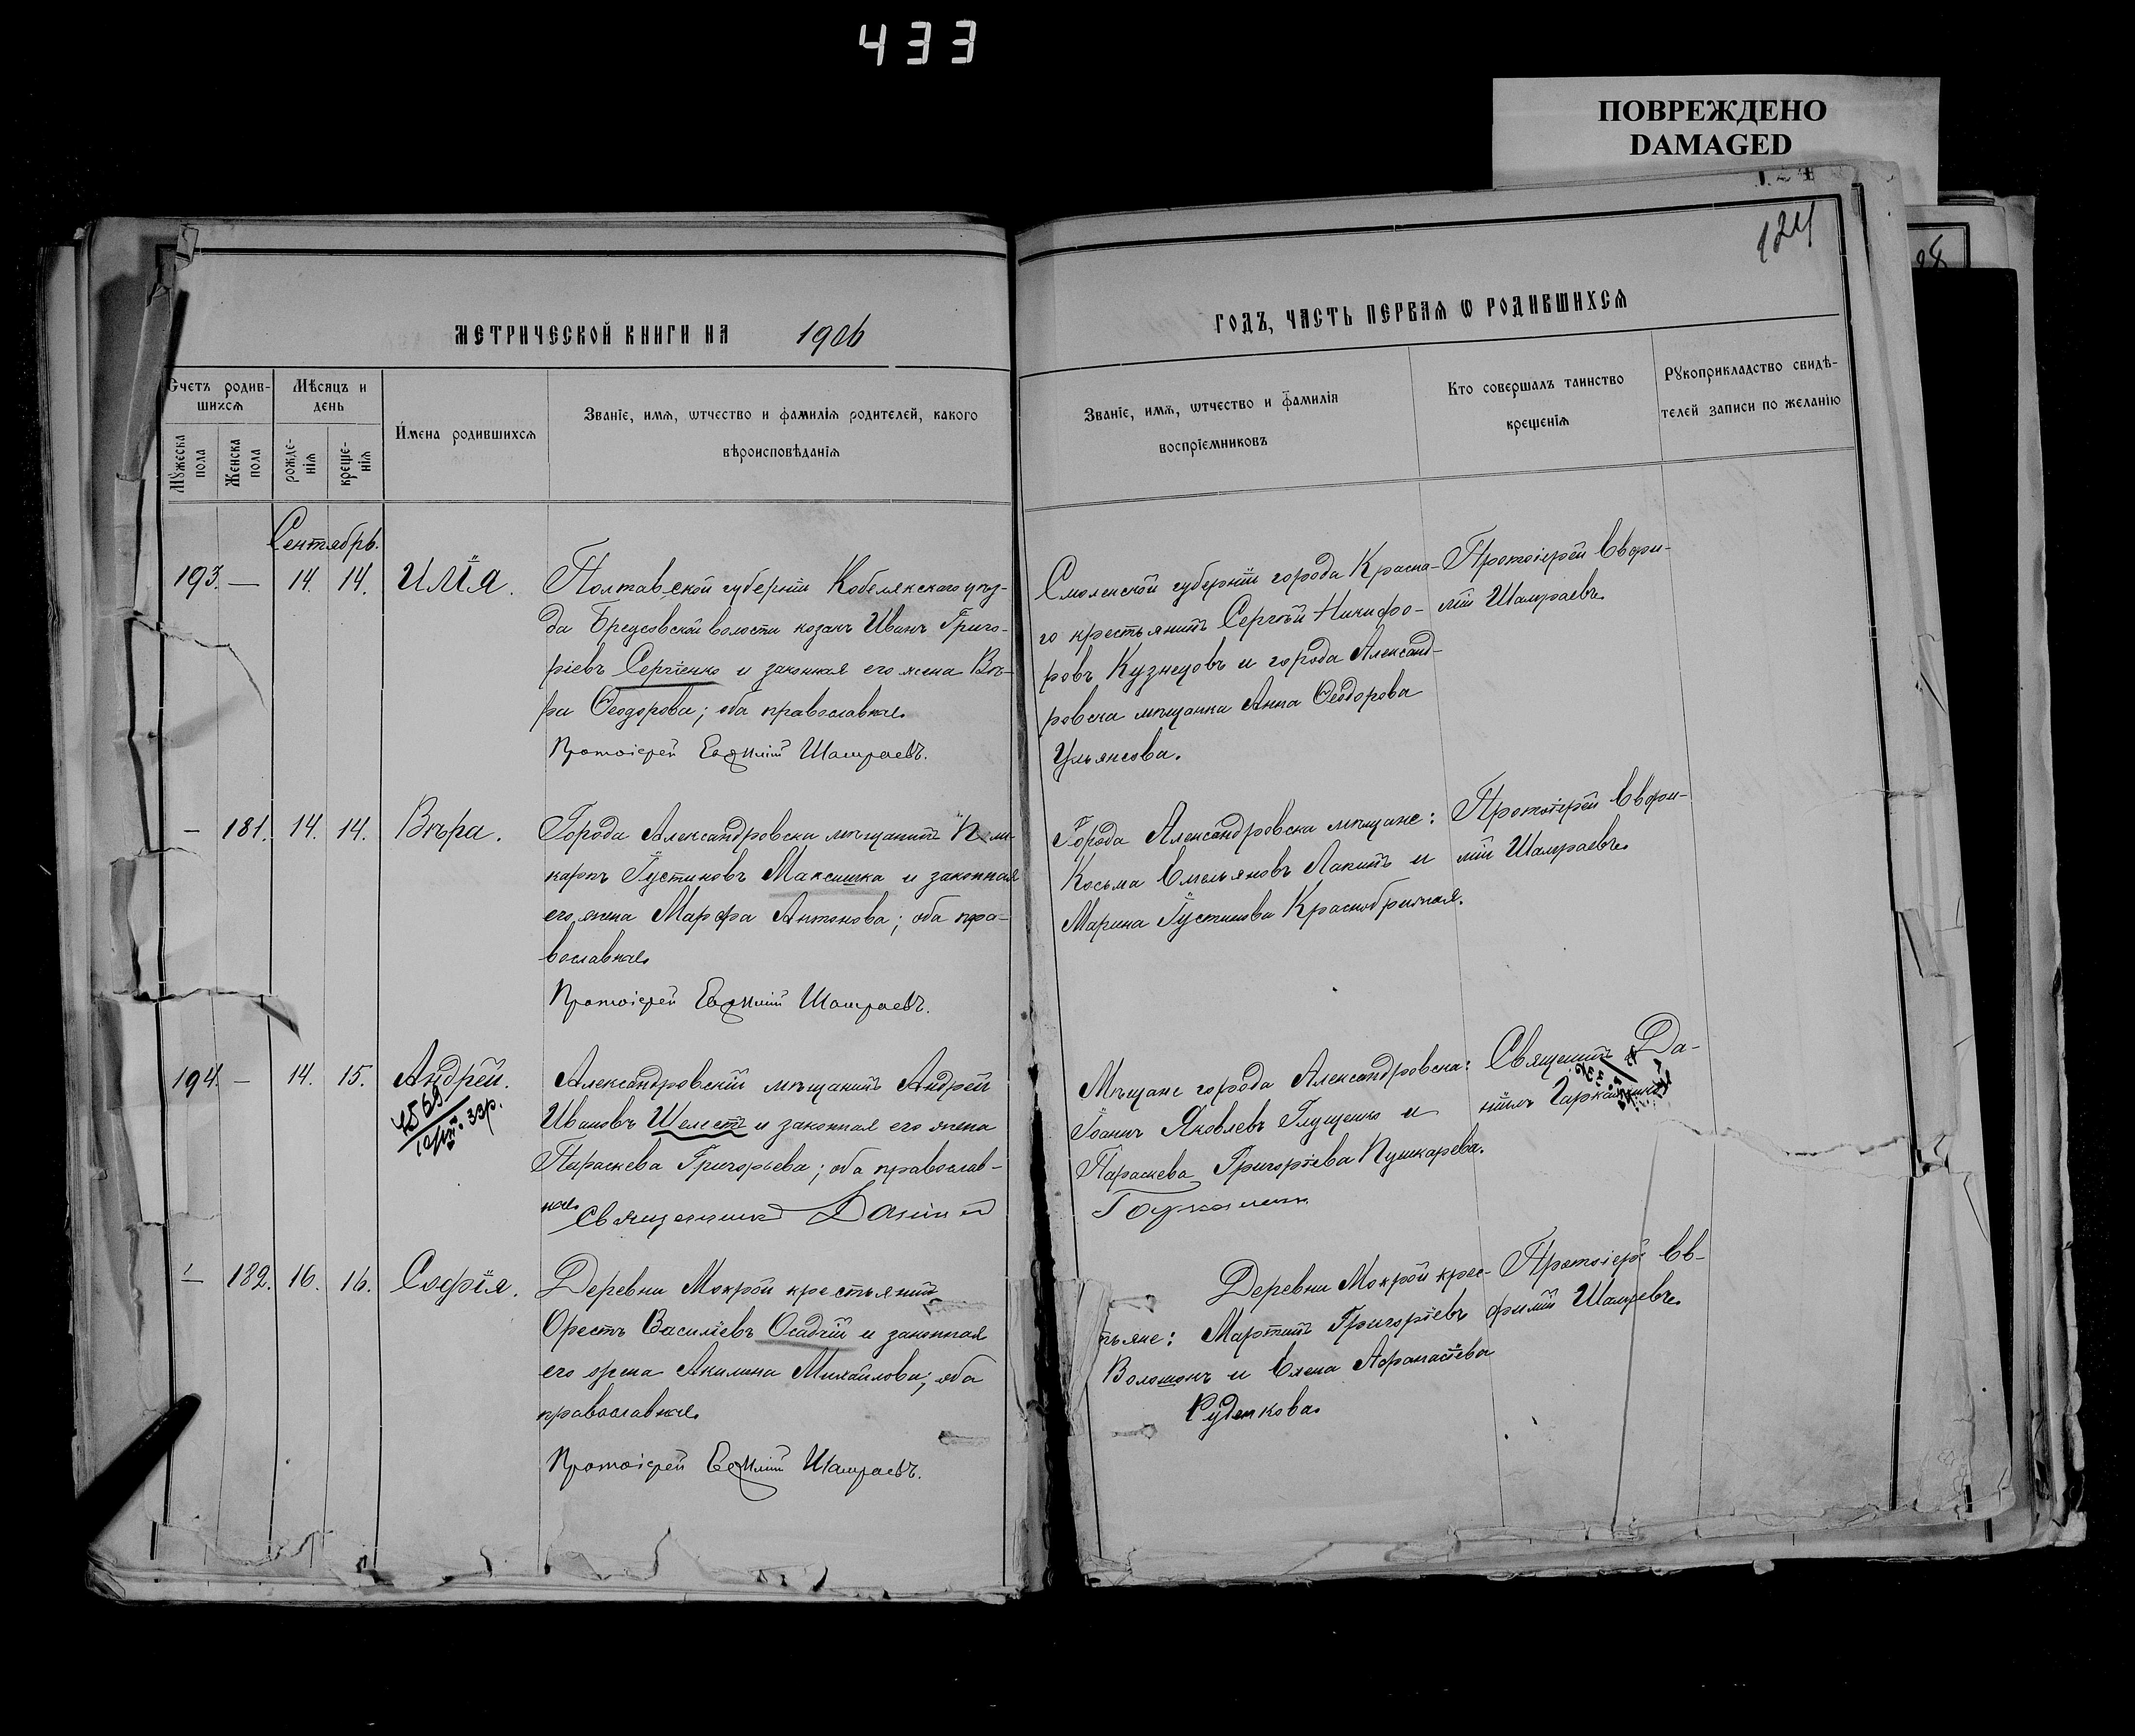 433
ПОВРЕЖДЕНО
DAMAGED
124
28
МЕТРИЧЕСКОЙ КНИГИ НА 1906
ГОДЪ, ЧАСТЬ ПЕРВАѦ Ѡ РОДИВШИХСѦ
Счетъ родив-
шихсѧ
Мужеска
пола
Женска
пола
Мѣсяцъ и
день
рожде-
нїѧ
креще-
нїѧ
Имена родившихсѧ
Званїе, имѧ, ѡтчество и фамилїѧ родителей, какого
вѣроисповѣданїѧ
Званїе, имѧ, ѡтчество и фамилїѧ
воспрїемниковъ
Кто совершалъ таинство
крещенїѧ
Рꙋкоприкладство свидѣ-
телей записи по желанїю
Сентябрь.
193. — 14. 14. Илія.
Полтавской губерніи Кобелякскаго уѣз-
да Бреусовской волости козакъ Иванъ Григо-
ріевъ Сергіенко и законная его жена Вѣ-
ра Ѳеодорова; оба православные.
Протоіерей Евѳимій Шамраевъ.
Смоленской губерніи города Красна-
го крестьянинъ Сергѣй Никифо-
ровъ Кузнецовъ и города Александ-
ровска мѣщанка Анна Ѳеодорова
Ульянова.
Протоіерей Евѳи-
мій Шамраевъ.
— 181. 14. 14. Вѣра.
Города Александровска мѣщанинъ Поли-
карпъ Іустиновъ Максишка и законная
его жена Марѳа Антонова; оба пра-
вославные.
Протоіерей Евѳимій Шамраевъ.
Города Александровска мѣщане:
Косьма Емельяновъ Лакизъ и
Марина Іустинова Краснобрижая.
Протоіерей Евѳи-
мій Шамраевъ.
194. — 14. 15. Андрей.
Александровскій мѣщанинъ Андрей
Ивановъ Шелестъ и законная его жена
Параскева Григорьева; оба православ-
ные. Священникъ Даніилъ
Мѣщане города Александровска:
Іоаннъ Яковлевъ Глущенко и
Параскева Григоріева Пушкарева.
Гаркавенко
Священникъ Да-
ніилъ
— 182. 16. 16. Софія.
Деревни Мокрой крестьянинъ
Орестъ Василіевъ Осадчій и законная
его жена Акилина Михайлова; оба
православные.
Протоіерей Евѳимій Шамраевъ.
Деревни Мокрой крес-
тьяне: Мартинъ Григоріевъ
Волошонъ и Елена Аѳанасіева
Руденкова.
Протоіерей Ев-
ѳимій Шамраевъ.